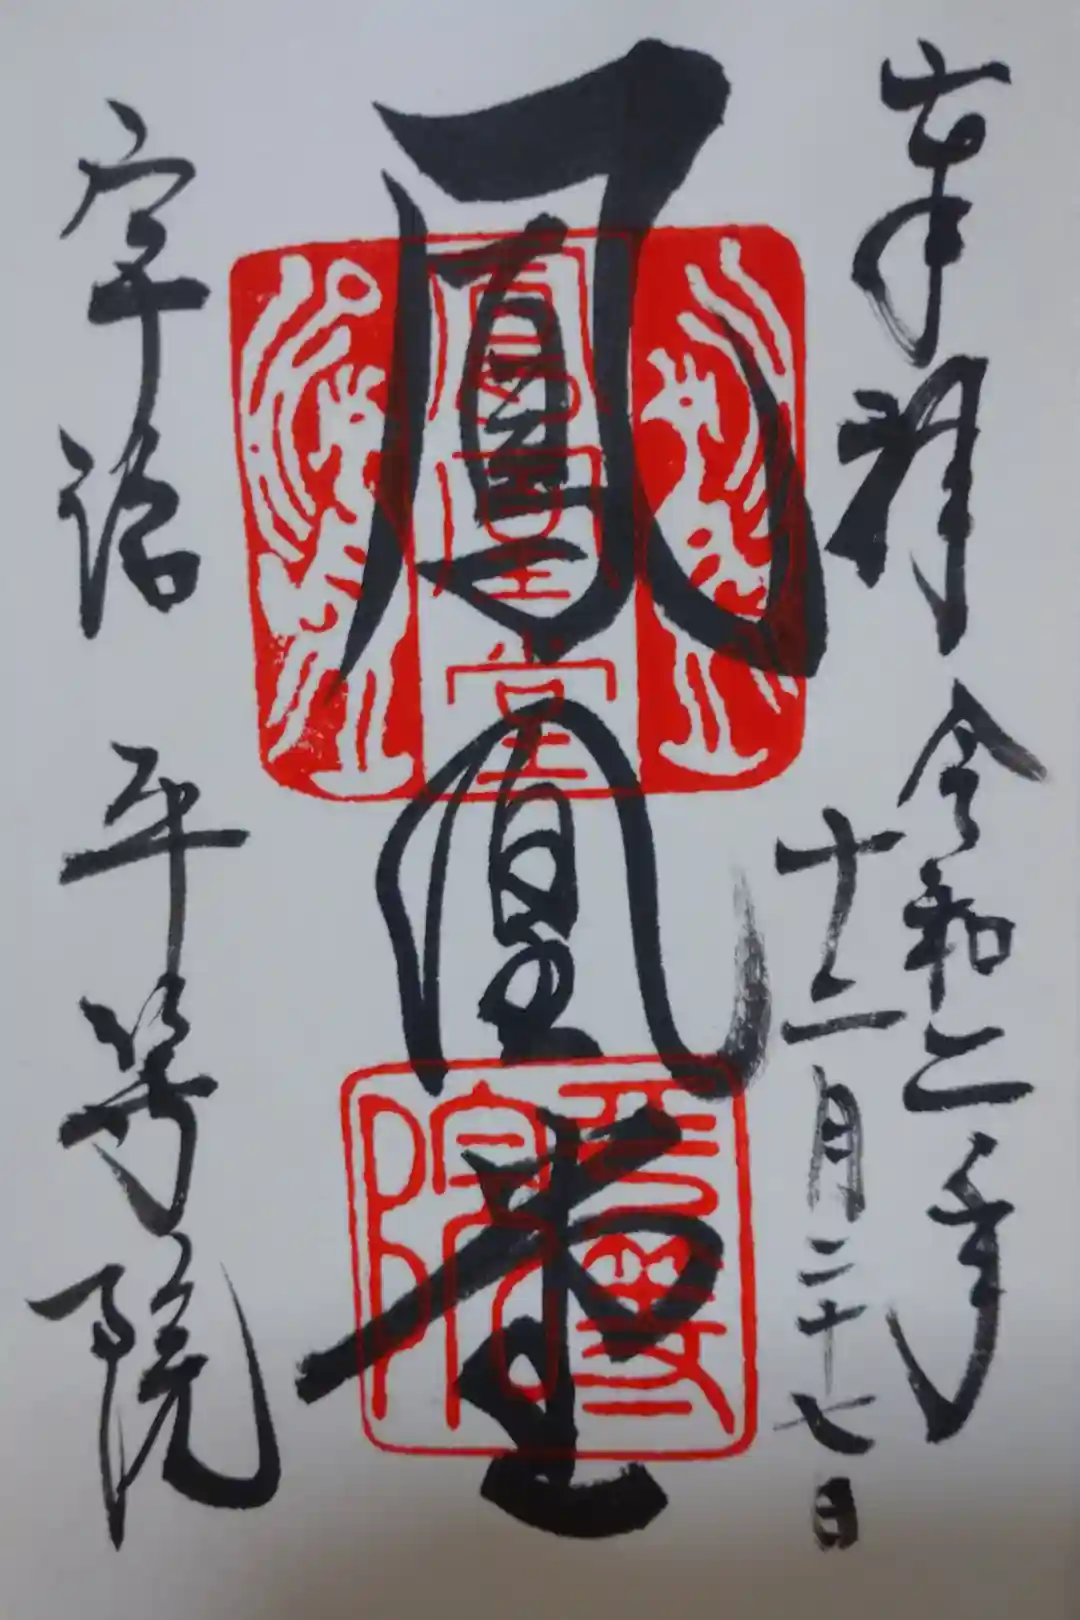 奉拝 令和二年
十二月二十七日
鳳凰堂
宇治 平等院
鳳凰堂